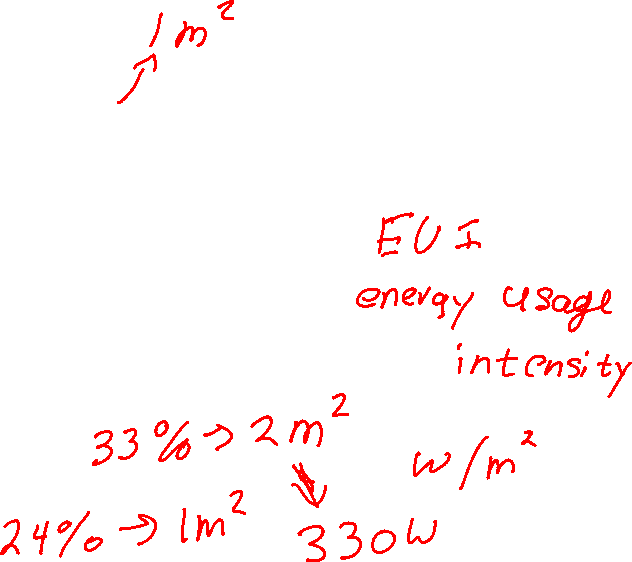 1 m²
EUI
energy usage
intensity
33% → 2 m²
W/m²
24% → 1m²
330W